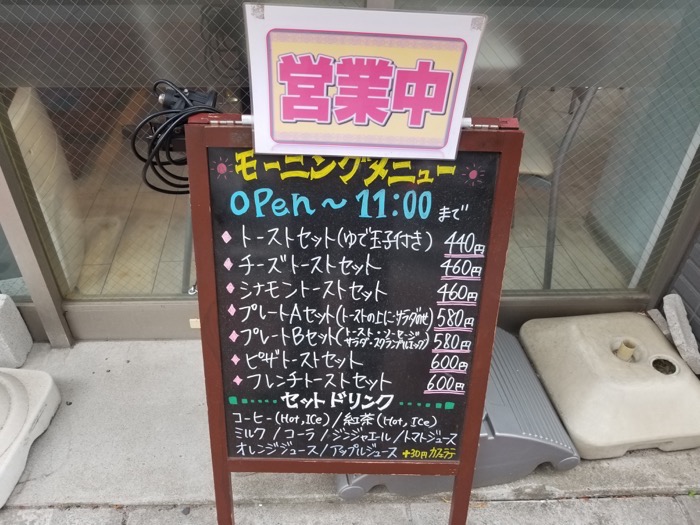 営業中
モーニングメニュー
OPen～11:00まで
トーストセット(ゆで玉子付き) 440円
チーズトーストセット 460円
シナモントーストセット 460円
プレートAセット(トーストの上にサラダのせ) 580円
プレートBセット(トースト・ソーセージ サラダ・スクランブルエッグ) 580円
ピザトーストセット 600円
フレンチトーストセット 600円
セットドリンク
コーヒー(Hot,Ice)/紅茶(Hot,Ice)
ミルク/コーラ/ジンジャエール/トマトジュース
オレンジジュース/アップルジュース +30円カフェラテ